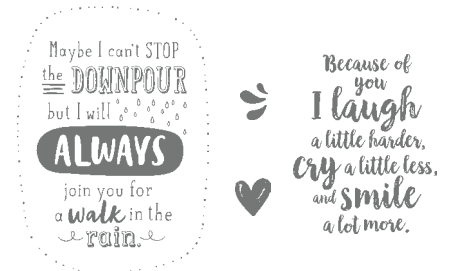 Maybe I can't STOP
the DOWNPOUR
but I will
ALWAYS
join you for
a walk in the
rain.
Because of
you
I laugh
a little harder,
cry a little less,
and smile
a lot more.